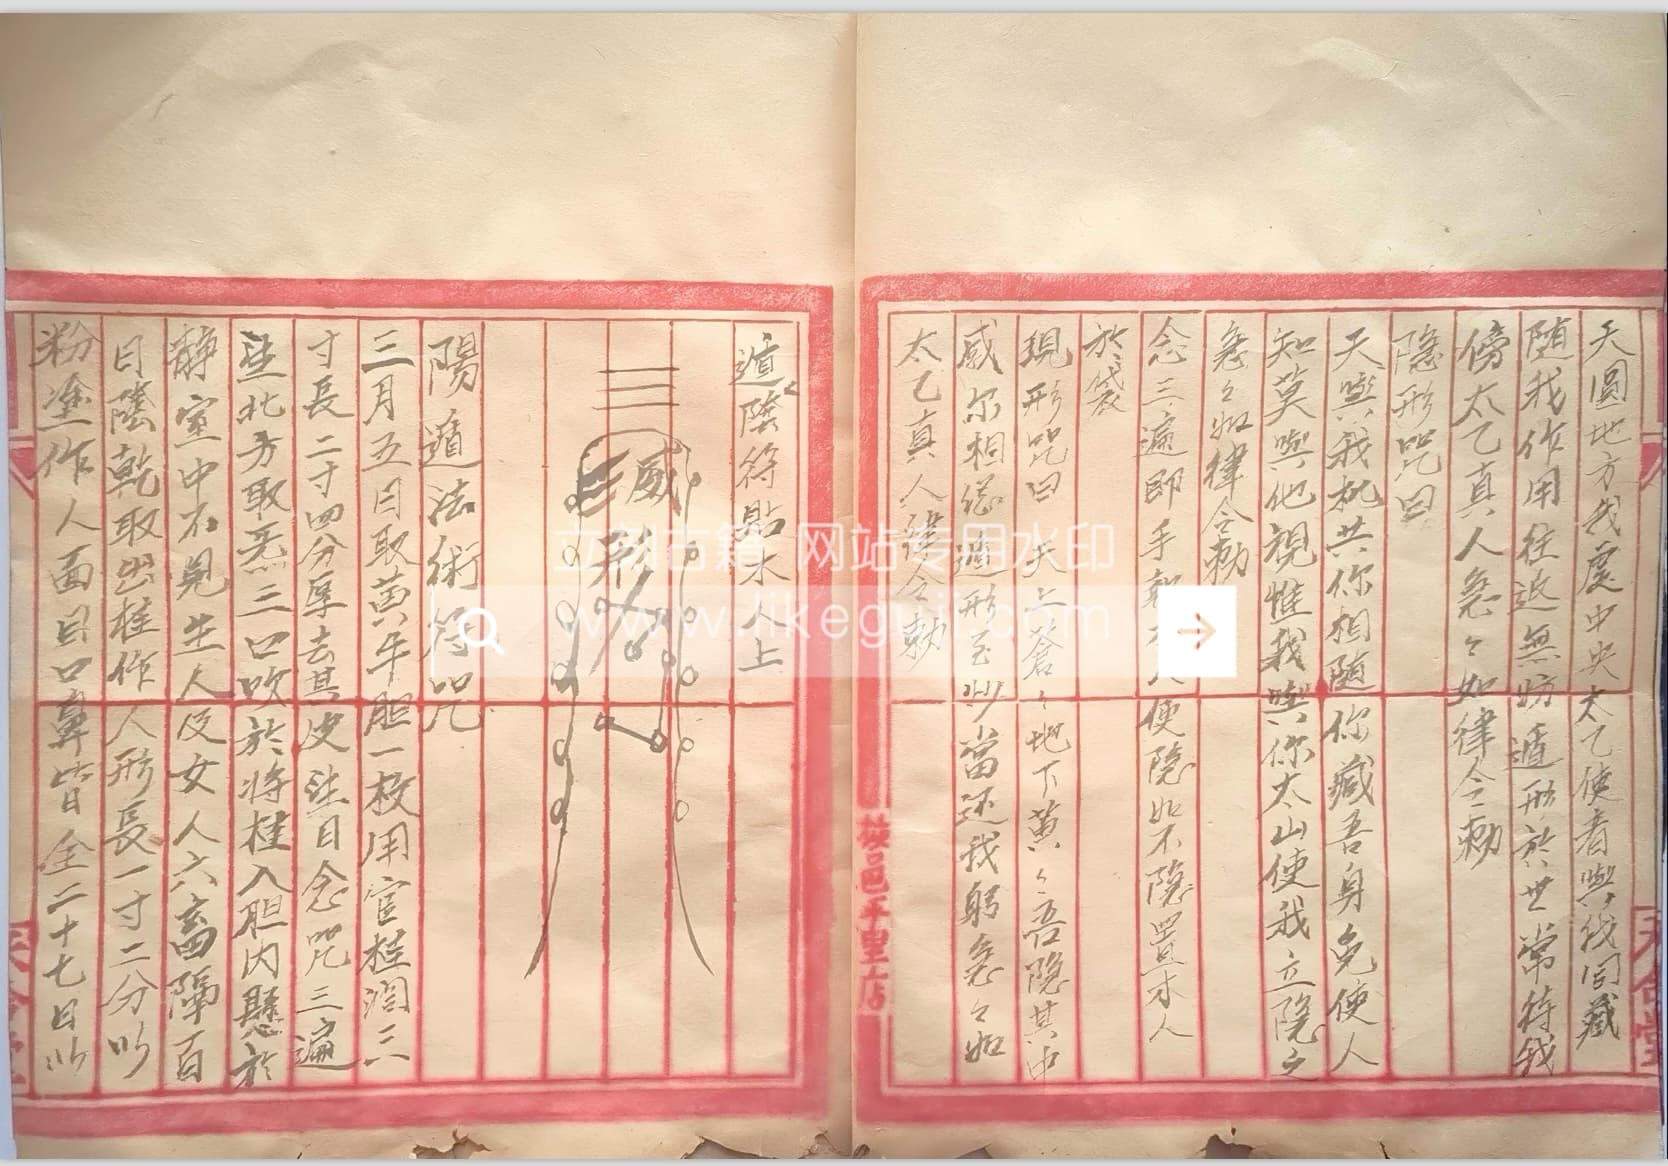 天圓地方我處中央太乙使者與我同藏
隨我作用往返無妨遁形於世常待我
傍太乙真人急々如律令勅
隐形咒曰
天與我机共你相随你藏吾身免使人
知莫與他視惟我與你太山使我立隐之
急々如律令勅
念三遍即手 便隐如不隐置木人
於袋
現形咒曰 天上蒼々地下黄々吾隐其中
感尔相 遁形至 當还我躬急々如
太乙真人律令勅
遁陰符貼木人上
威
形
陽遁法術符咒
三月五日取黄牛胆一枚用官桂濶三
寸長二寸四分厚去其皮注目念咒三遍
望北方取炁三口吹於将桂入胆内懸於
静室中不見生人及女人六畜隔百
日陰乾取出桂作人形長一寸二分以
粉塗作人面目口鼻皆全二十七日以
天合堂
平里店
立刻古籍 网站专用水印
www.likeguji.com